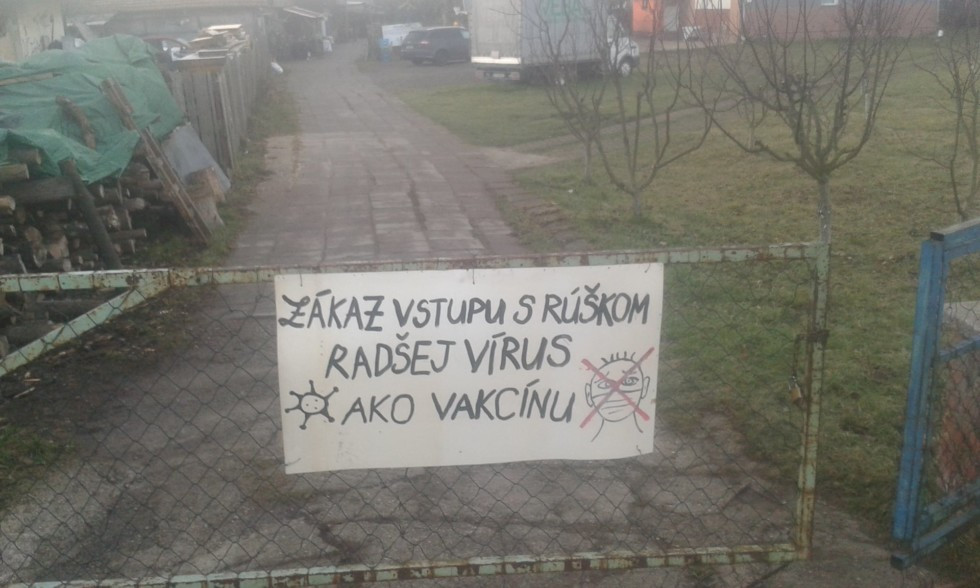 ZÁKAZ VSTUPU S RÚŠKOM
RADŠEJ VÍRUS
AKO VAKCÍNU